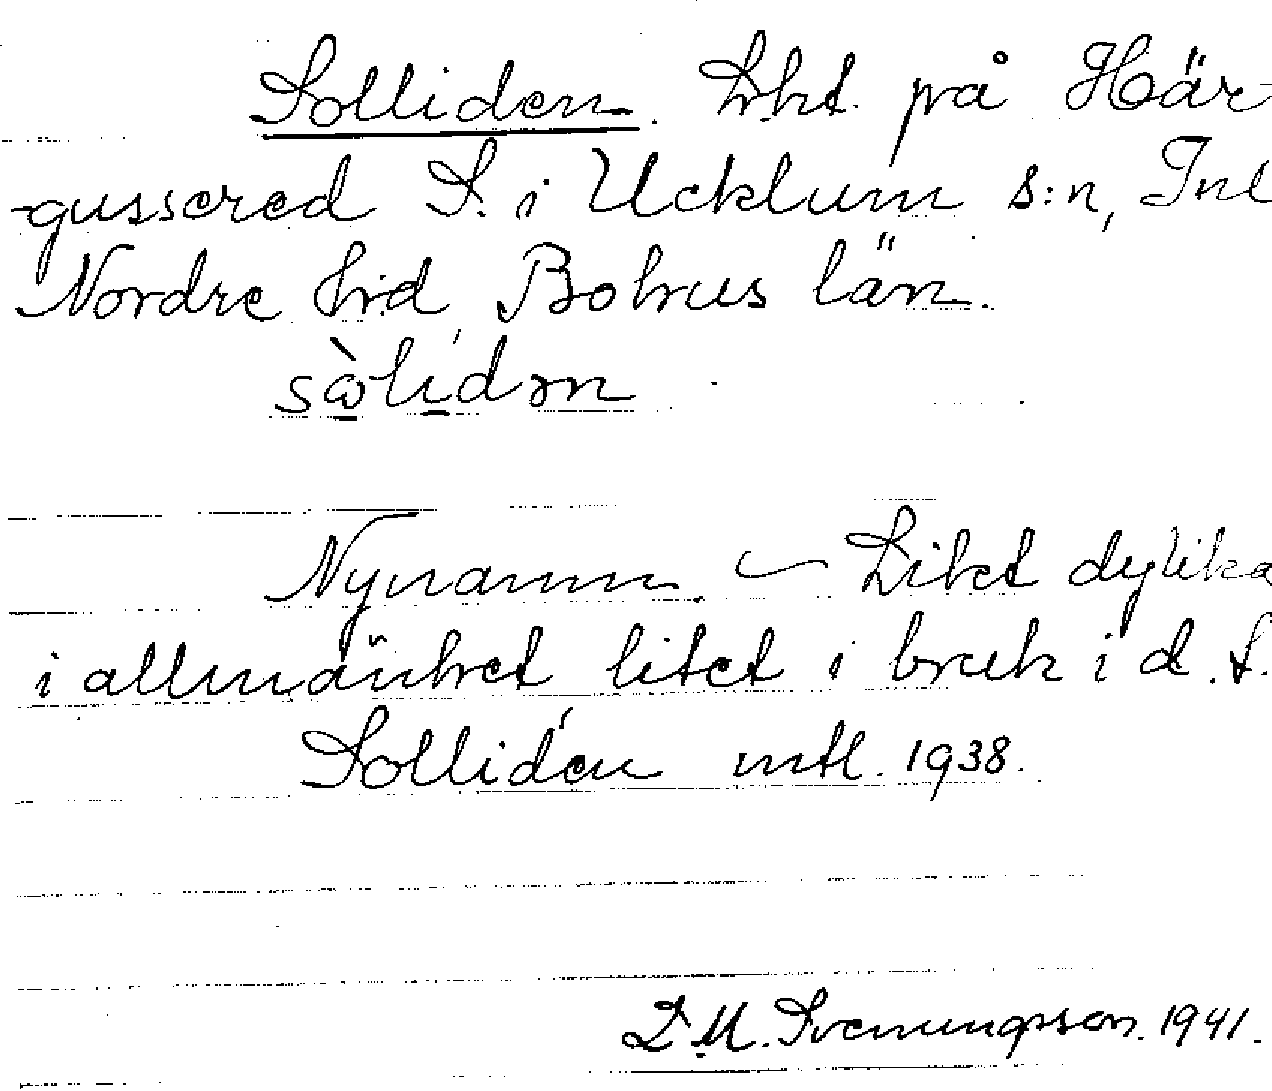 Solliden. Lht. på Här-
gussered S. i Ucklum s:n, Inl
Nordre hd, Bohus län.
sòlidən
Nynamn. – Likt dylika
i allmänhet litet i bruk i d. t.
Sollidén mtl. 1938.
D. M. Svenungsson. 1941.